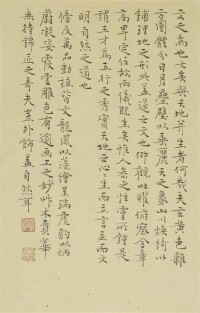 文之為也大矣與天地并生者何哉夫玄黃色雜
方圓體分日月疊璧以垂麗天之象山川煥綺以
鋪理地之形此蓋道之文也仰觀吐曜俯察含章
高卑定位故兩儀既生矣惟人參之性靈所鍾是
謂三才為五行之秀實天地之心生而立言立而文
明自然之道也
傍及萬品動植皆文龍鳳以藻繪呈瑞虎豹以炳
蔚凝姿霞雲雕色有逾畫工之妙艸木賁華
無待錦匠之奇夫豈外飾蓋自然耳